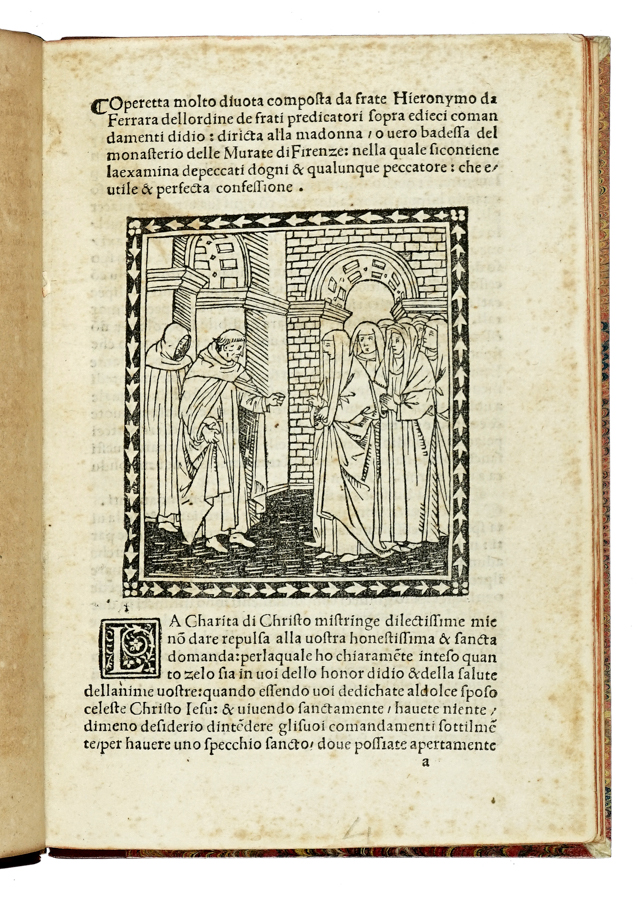 ⸿Operetta molto diuota compoſta da frate Hieronymo da
Ferrara dellordine de frati predicatori ſopra edieci coman
damenti didio : diricta alla madonna / o uero badeſſa del
monaſterio delle Murate diFirenze: nella quale ſicontiene
laexamina depeccati dogni & qualunque peccatore : che e/
utile & perfecta confeſſione .
LA Charita di Chriſto miſtringe dilectiſſime mie
nō dare repulſa alla uoſtra honeſtiſſima & ſancta
domanda: perlaquale ho chiaramēte inteſo quan
to zelo ſia in uoi dello honor didio & della ſalute
dellanime uoſtre: quando eſſendo uoi dedichate aldolce ſpoſo
celeſte Chriſto Ieſu: & uiuendo ſanctamente / hauete niente /
dimeno deſiderio dintēdere gliſuoi comandamenti ſottilmē
te/per hauere uno ſpecchio ſancto/ doue poſſiate apertamente
a